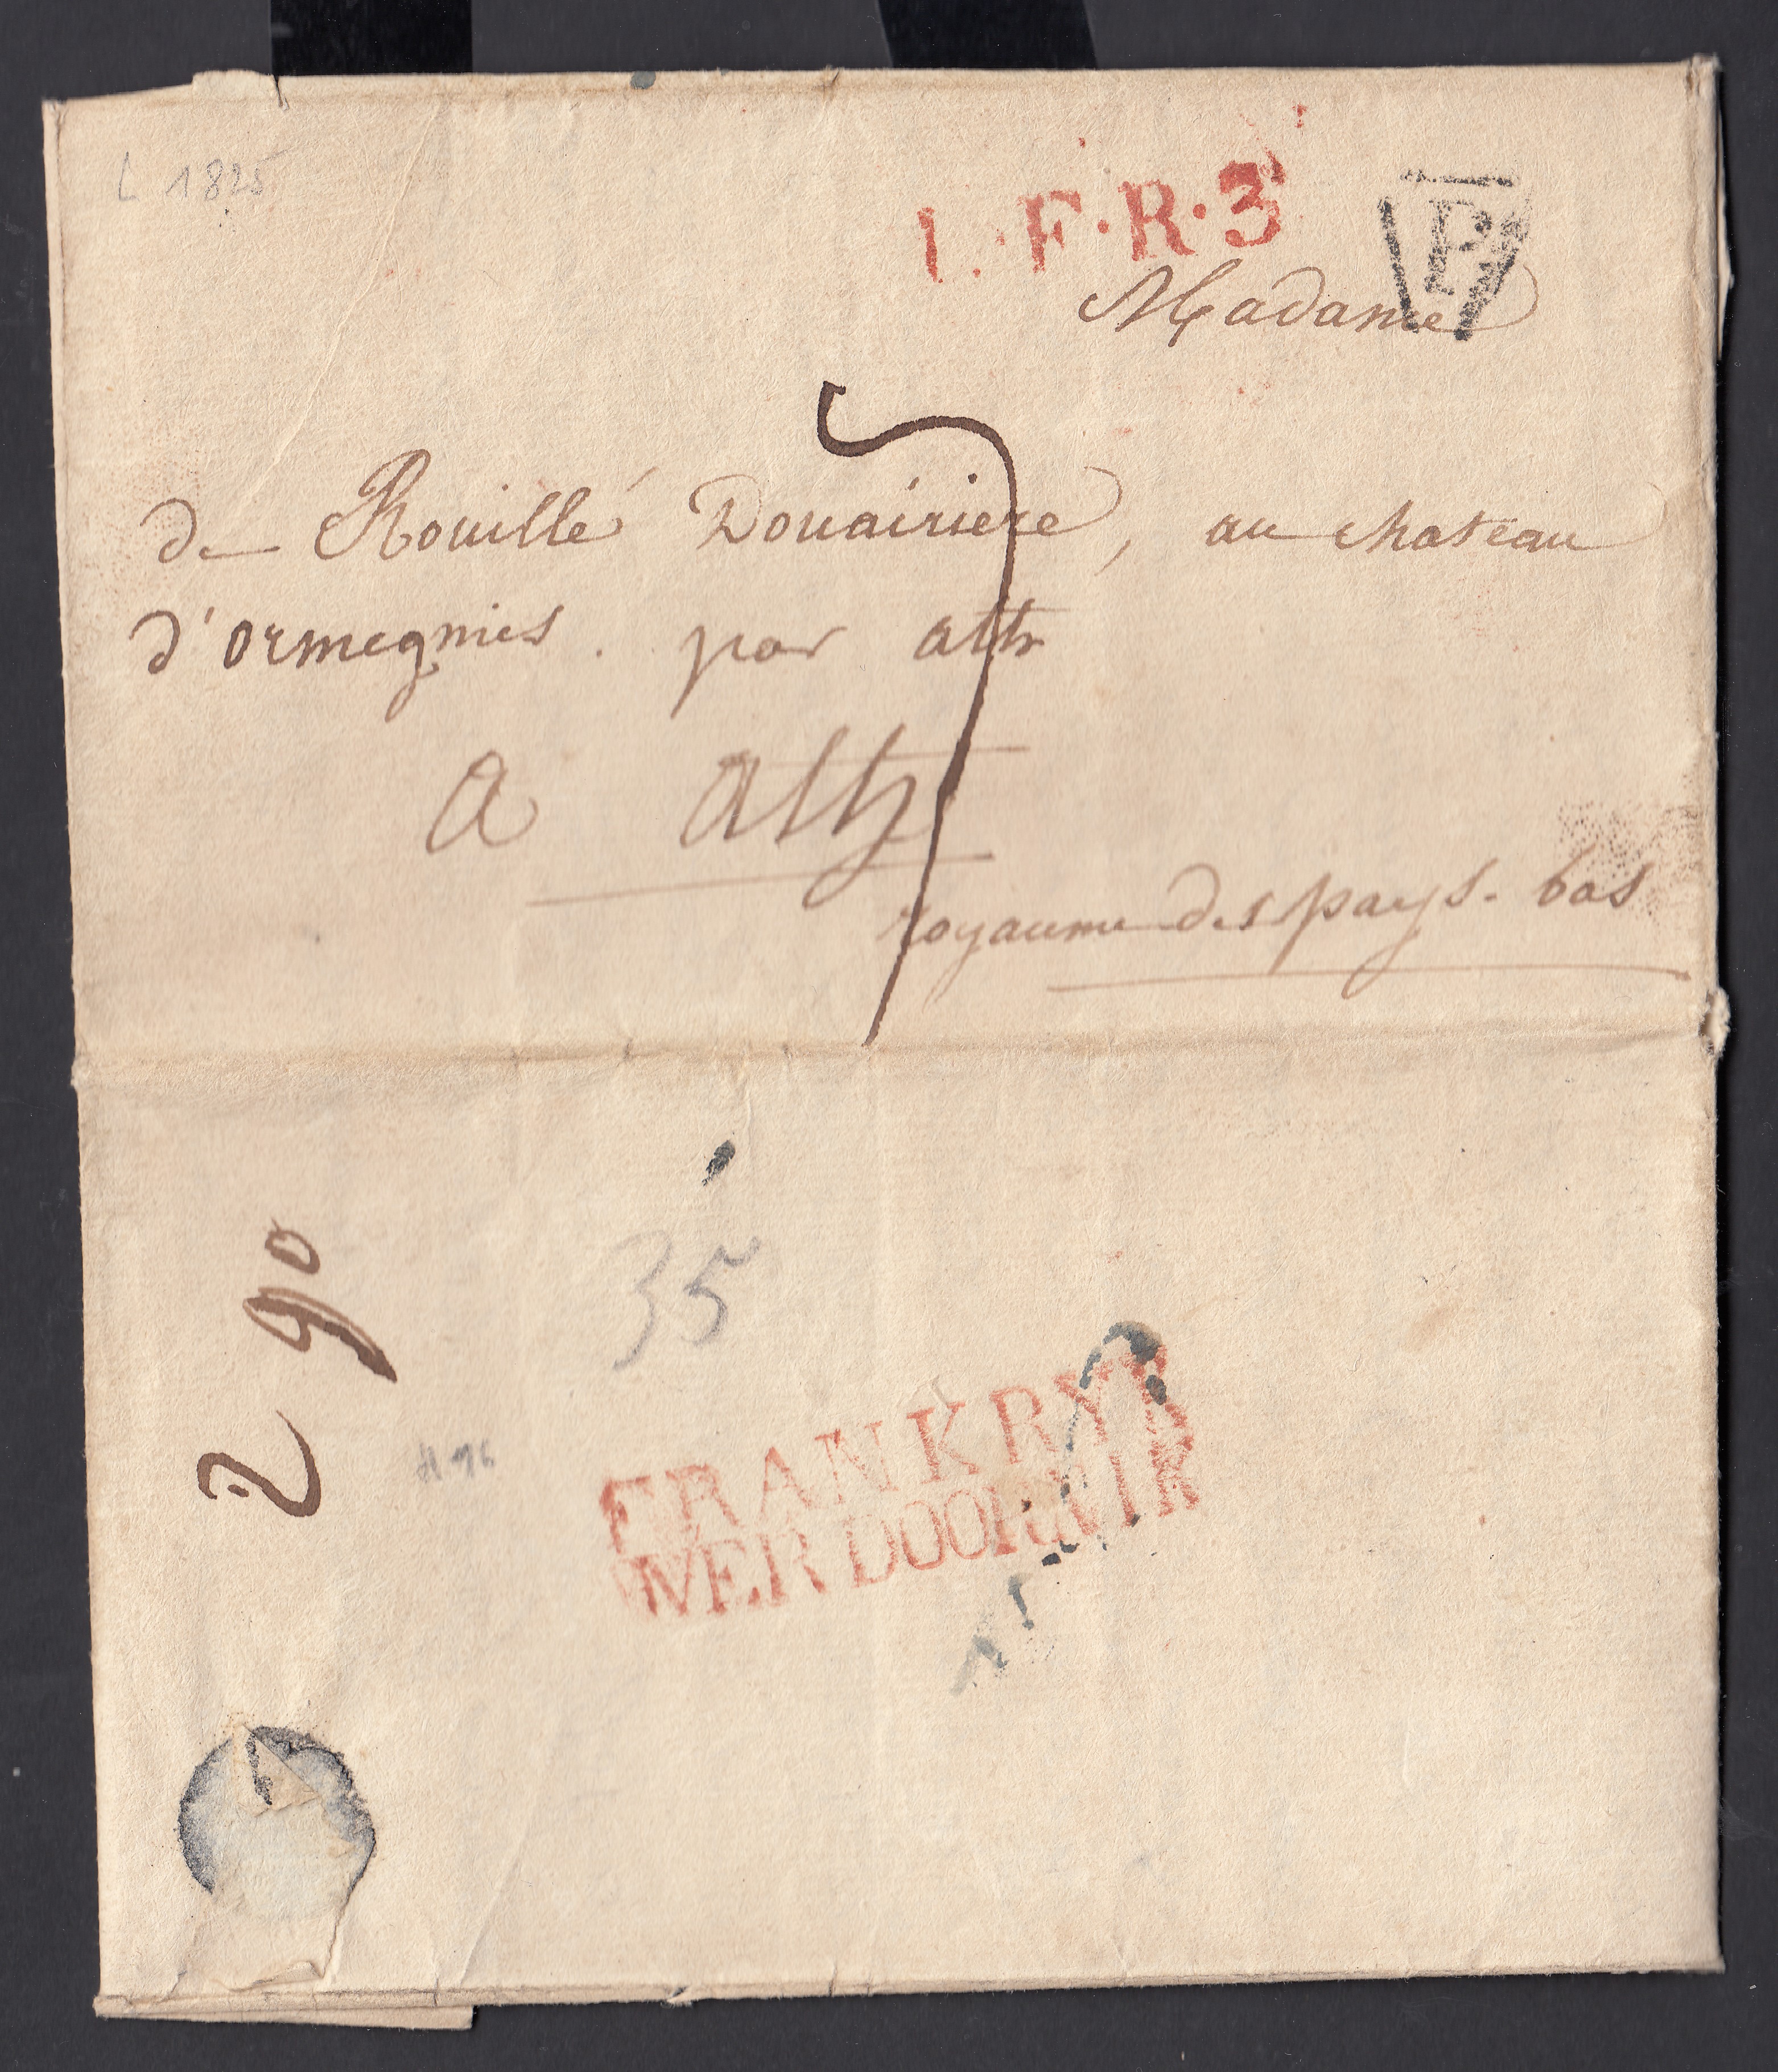 L 1825
L.F.R.3
P
Madame
de Rouillé Douairiere, au chateau
d'ormegnies. par atth
a atth
royaume des pays-bas
35
2 90
FRANKRYK
OVER DOORNIK